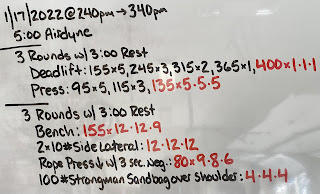 1/17/2022 @ 240pm → 340pm
5:00 Airdyne
3 Rounds w/ 3:00 Rest
Deadlift: 155x5, 245x3, 315x2, 365x1, 400x1·1·1
Press: 95x5, 115x3, 135x5·5·5
3 Rounds w/ 3:00 Rest
Bench: 155x12·12·9
2x10# Side Lateral: 12·12·12
Rope Press↓ w/ 3 sec. Neg.: 80x9·8·6
100# Strongman Sandbag over Shoulder: 4·4·4